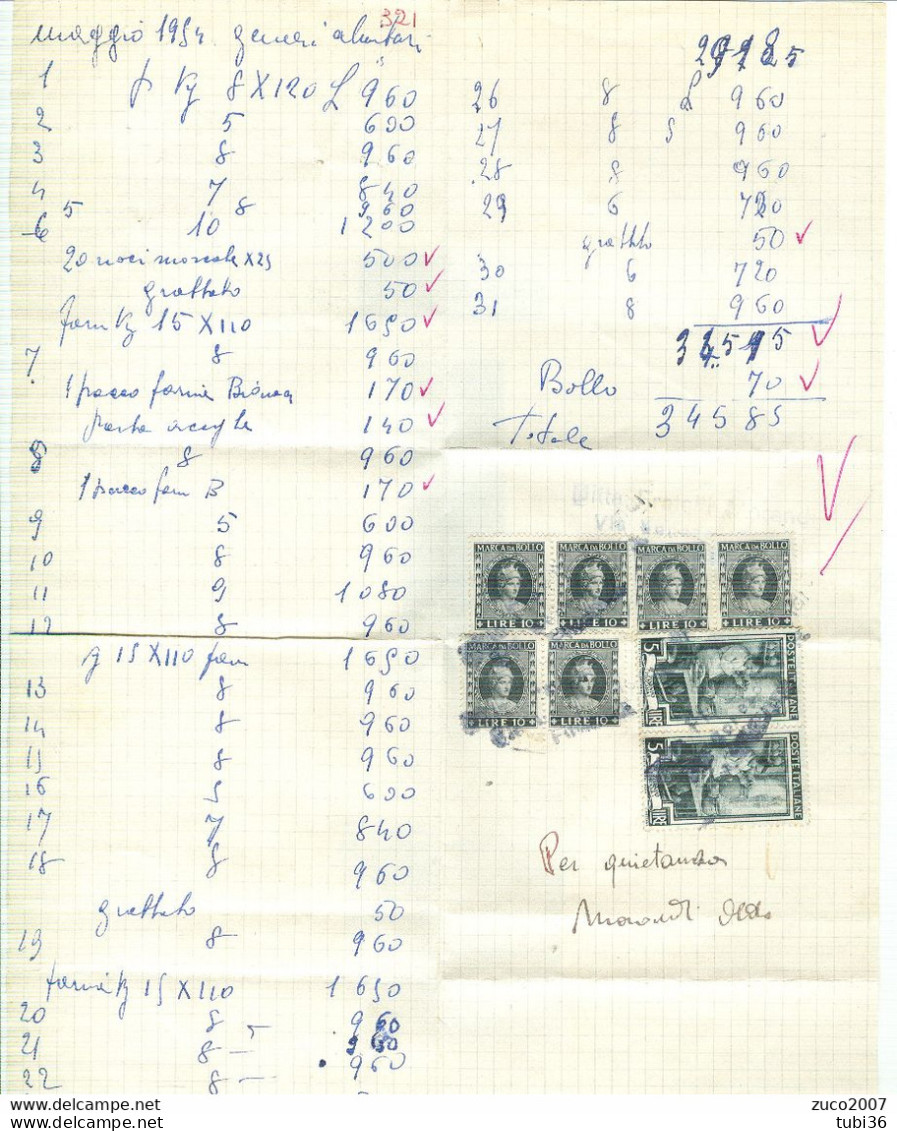 321
maggio 1954 generi alimentari
1 p Kg 8 X 120 L 960
2 5 600
3 8 960
4 7 840
5 8 960
6 10 1200
20 noci moscate X 25 500
grattato 50
farin Kg 15 X 110 1650
7 8 960
1 pacco farina Bianca 170
pasta 140
8 8 960
1 pacco farin B 170
9 5 600
10 8 960
11 9 1080
12 8 960
15 X 110 farin 1650
13 8 960
14 8 960
15 8 960
16 5 600
17 7 840
18 8 960
grattato 50
19 8 960
farina Kg 15 X 110 1650
20 8 960
21 8 – 5
22 8 – 960
26 8 L 960
27 8 960
28 8 960
29 6 720
grattato 50
30 6 720
31 8 960
34515
Bollo 70
Totale 34585
MARCA DA BOLLO
LIRE 10
MARCA DA BOLLO
LIRE 10
MARCA DA BOLLO
LIRE 10
MARCA DA BOLLO
LIRE 10
MARCA DA BOLLO
LIRE 10
MARCA DA BOLLO
LIRE 10
POSTE ITALIANE
5 LIRE
POSTE ITALIANE
5 LIRE
Per quietanza
Morandi
zuco2007
tubi36